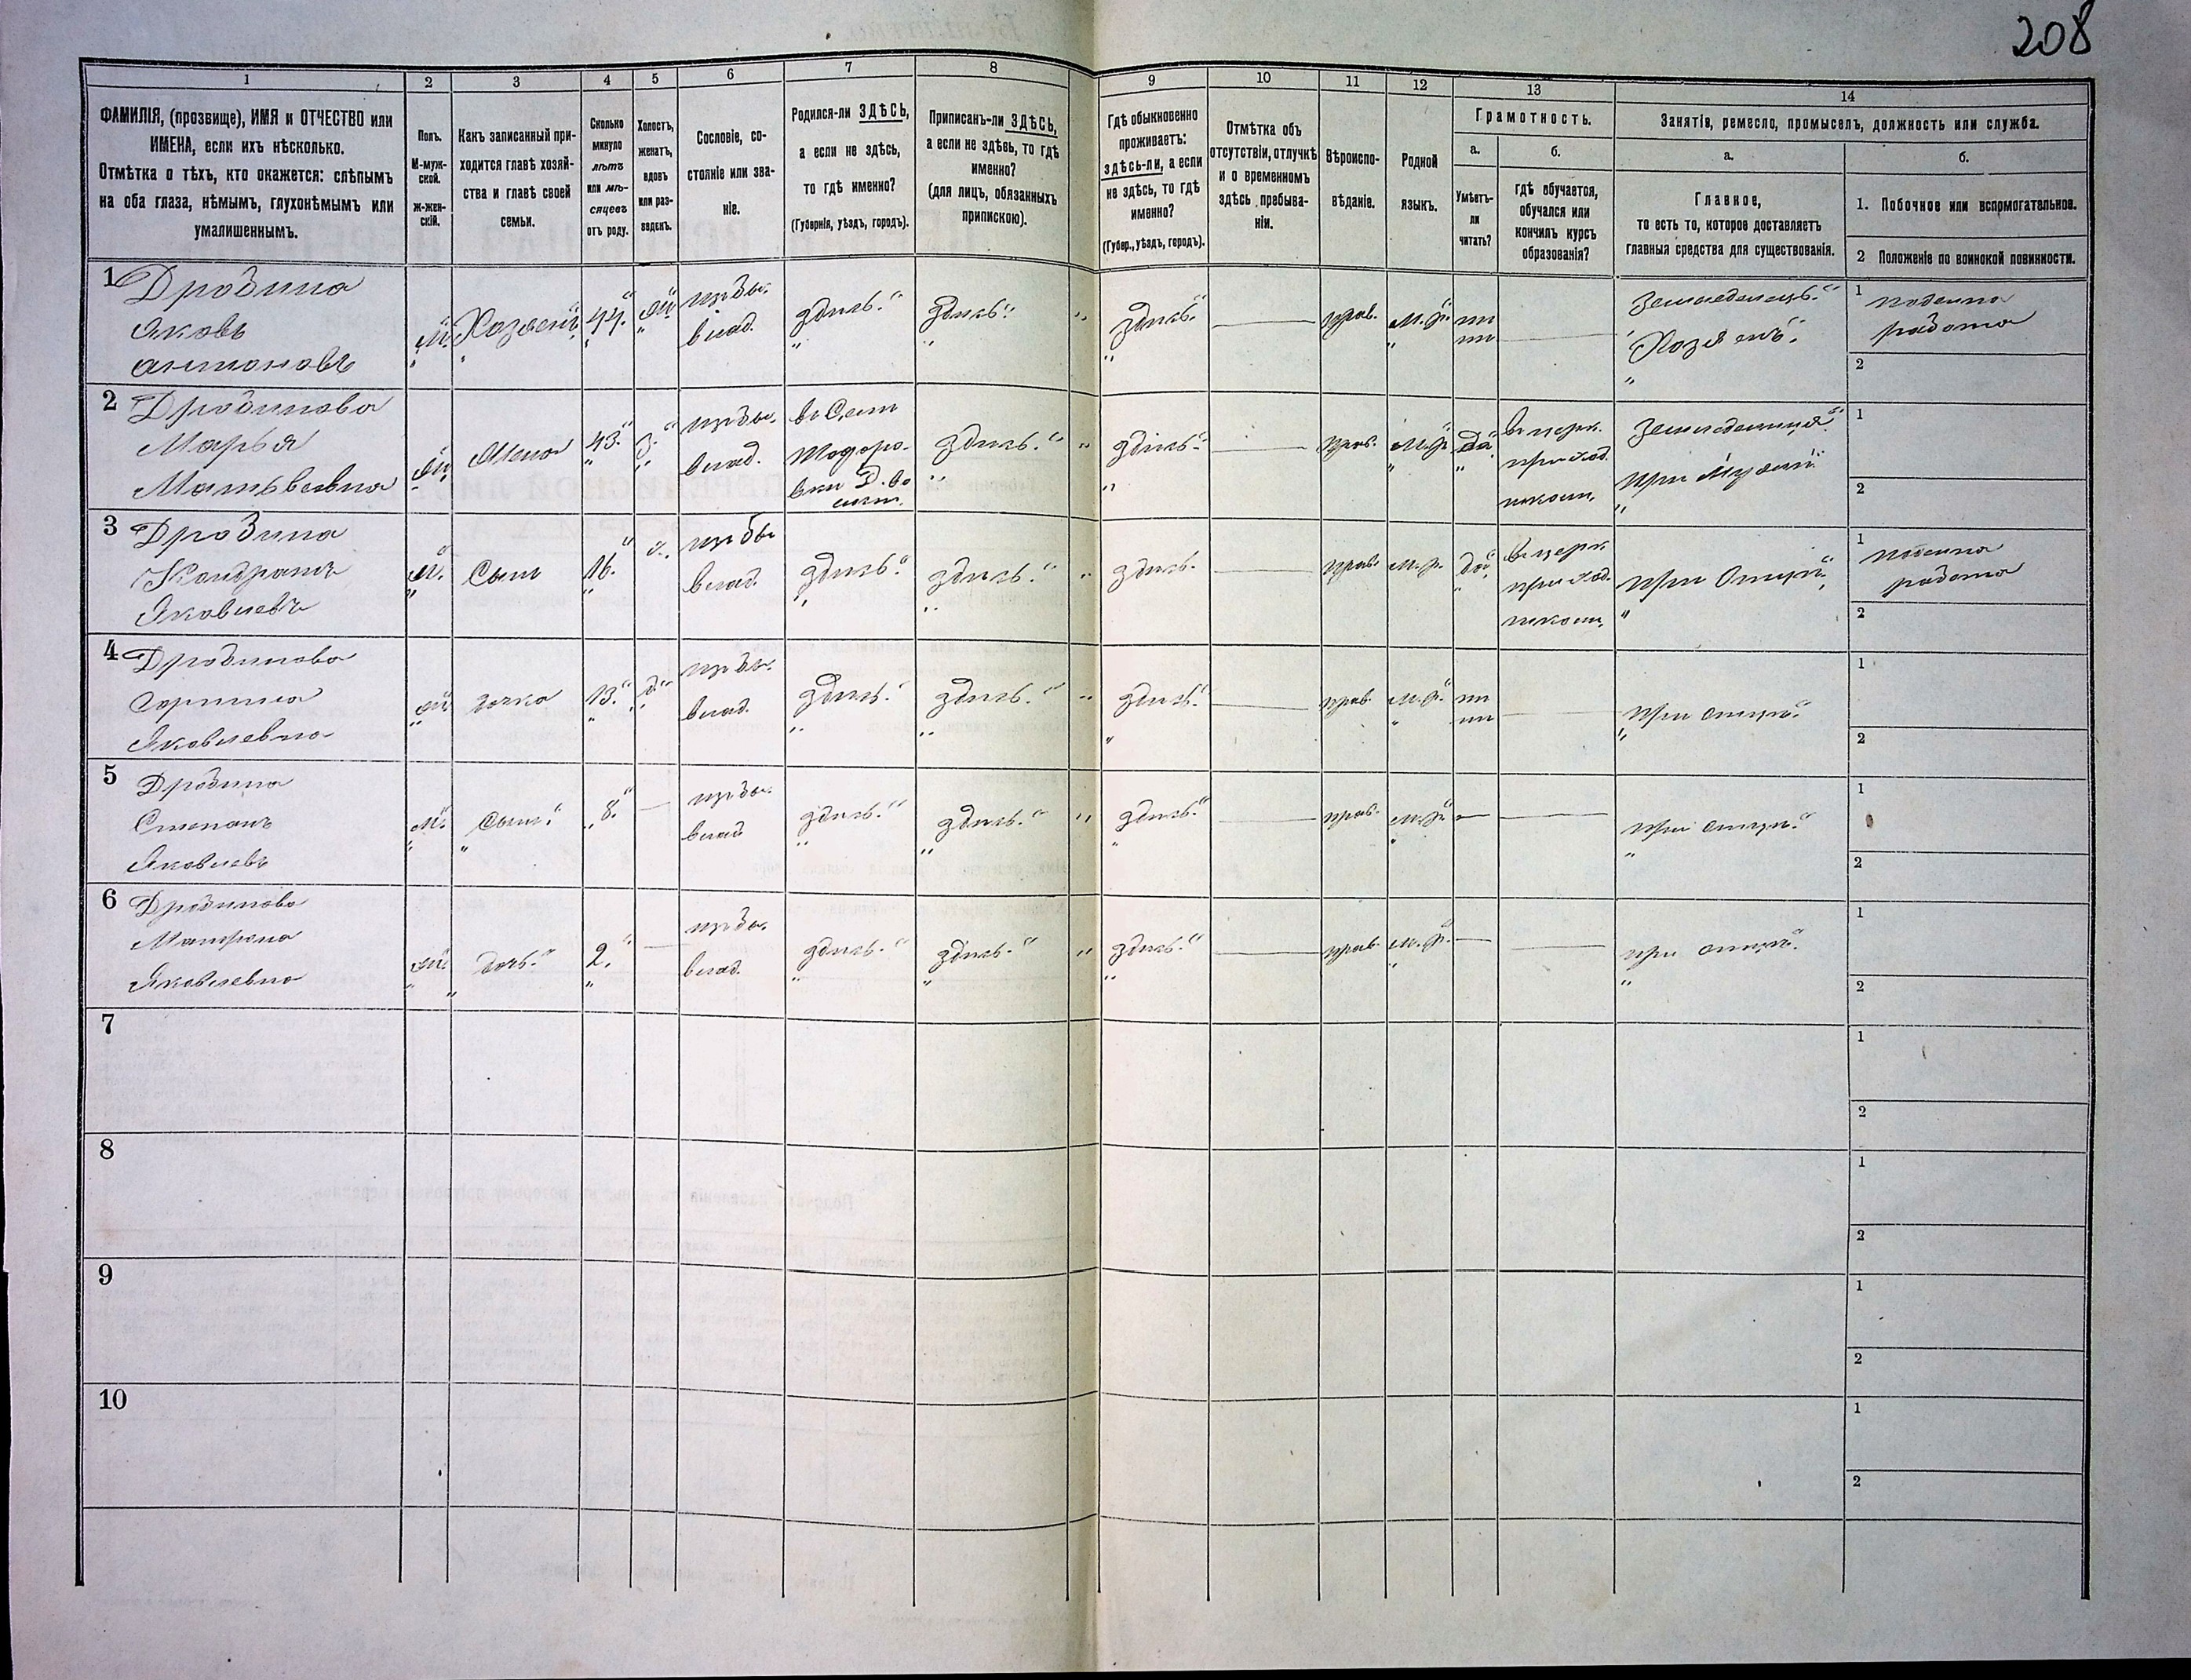 208
1 2 3 4 5 6 7 8 9 10 11 12 13 14
ФАМИЛІЯ, (прозвище), ИМЯ и ОТЧЕСТВО или
ИМЕНА, если ихъ нѣсколько.
Отмѣтка о тѣхъ, кто окажется: слѣпымъ
на оба глаза, нѣмымъ, глухонѣмымъ или
умалишеннымъ.
Полъ.
М-муж-
ской.
Ж-жен-
скій.
Какъ записанный при-
ходится главѣ хозяй-
ства и главѣ своей
семьи.
Сколько
минуло
лѣтъ
или мѣ-
сяцевъ
отъ роду.
Холостъ,
женатъ,
вдовъ
или раз-
веденъ.
Сословіе, со-
стояніе или зва-
ніе.
Родился-ли ЗДѢСЬ,
а если не здѣсь,
то гдѣ именно?
(Губернія, уѣздъ, городъ).
Приписанъ-ли ЗДѢСЬ,
а если не здѣсь, то гдѣ
именно?
(для лицъ, обязанныхъ
припискою).
Гдѣ обыкновенно
проживаетъ:
здѣсь-ли, а если
не здѣсь, то гдѣ
именно?
(Губер., уѣздъ, городъ).
Отмѣтка объ
отсутствіи, отлучкѣ
и о временномъ
здѣсь пребыва-
ніи.
Вѣроиспо-
вѣданіе.
Родной
языкъ.
Грамотность.
а.
Умѣетъ-
ли
читать?
б.
гдѣ обучается,
обучался или
кончилъ курсъ
образованія?
Занятіе, ремесло, промыселъ, должность или служба.
а.
Главное,
то есть то, которое доставляетъ
главныя средства для существованія.
б.
1. Побочное или вспомогательное.
2 Положеніе по воинской повинности.
1
Дробина
Яковъ
Антоновъ
М. Хозяенъ 44. из бы. влад. здись. здись. здись. прав. М.р. ни ни
Земледелецъ.
Хозяенъ.
1 поденна
работа
2
2
Дробинова
Марья
Матвѣевна
Жена 43. з. из бы. влад.
в Сели
Тодоро-
вки
здись. здись. прав. М.р. да
в церк.
приход.
школи,
Земледелица
при Мужи
1
2
3
Дробина
Кондратъ
Яковлевъ
М. Сынъ 16. из бы влад. здись. здись. здись. прав. м.р. да
в церк.
приход.
школи,
при Отци
1 поденна
работа
2
4
Дробинова
Горпина
Яковлевна
дочка 13. д. из бы. влад. здись. здись. здись. прав. м.р. ни ни
при отци.
1
2
5
Дробина
Степанъ
Яковлевъ
М. Сынъ. 8. из бы. влад здись. здись. здись. прав. м.р.
при отци.
1
2
6
Дробинова
Матрена
Яковлевна
дочь. 2. из бы. влад. здись. здись. здись. прав. м.р.
при отци.
1
2
7
1
2
8
1
2
9
1
2
10
1
2